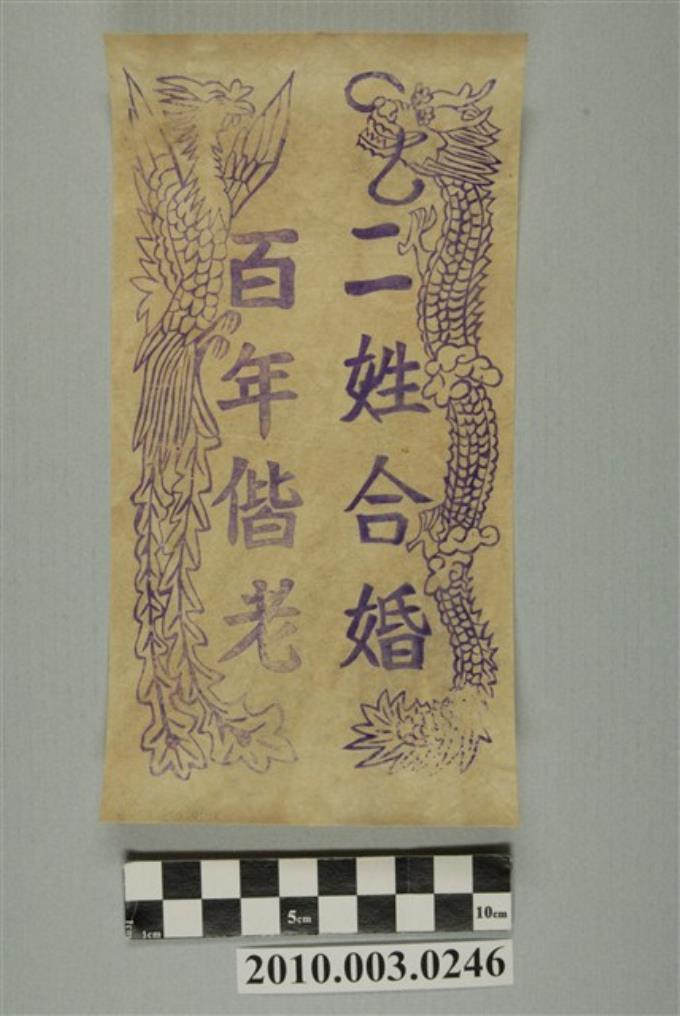 二姓合婚
百年偕老
5cm
10cm
1cm
1cm
2010.003.0246